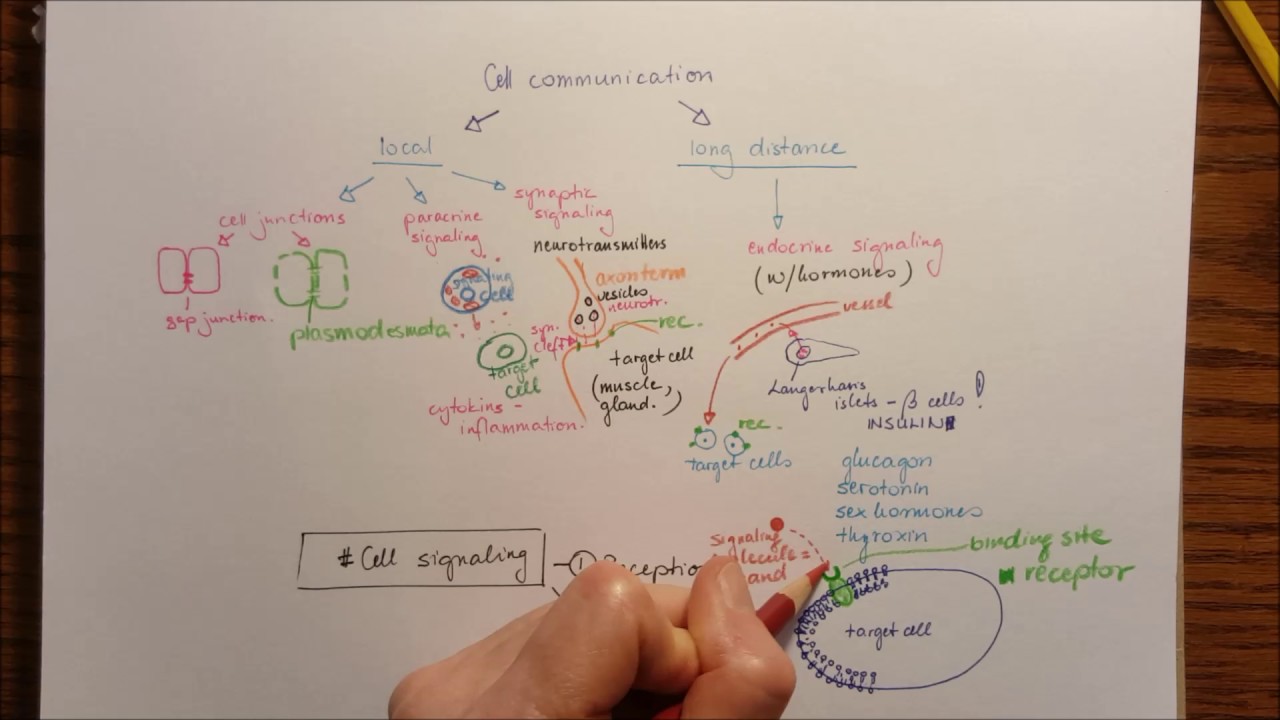 Cell communication
local
long distance
cell junctions
gap junction.
plasmodesmata
paracrine
signaling
signaling
cell
target
cell
cytokins -
inflammation.
synaptic
signaling
neurotransmitters
axonterm
vesicles
neurotr.
syn.
cleft
rec.
target cell
(muscle,
gland.)
endocrine signaling
(w/hormones)
vessel
Langerhans
islets - β cells!
INSULIN
rec.
target cells
glucagon
serotonin
sex hormones
thyroxin
# Cell signaling
1
signaling
=
binding site
receptor
target cell